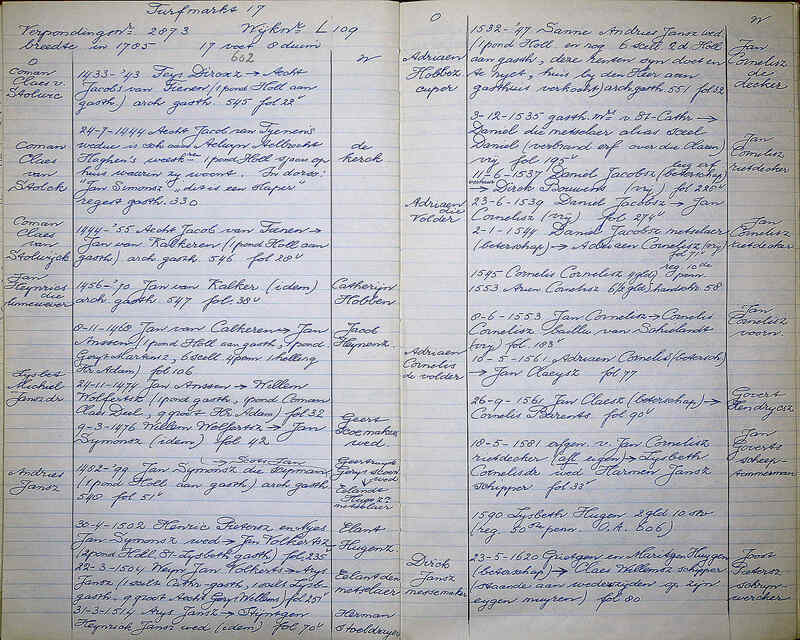 Turfmarkt 17
Verpondingsnr 2873 Wijknr L 109
breedte in 1785 17 voet 8 duim
662
O
W
Coman
Claes v.
Stolwic
1433-'43 Feys Dircxz → Aecht
Jacobs van Tienen (1 pond Holl aan
gasth) arch gasth. 545 fol 22v
Coman
Claes
van
Stolck
24-7-1444 Aecht Jacob van Tyenen's
wedue is sch aan
Haghen's 1 pond Holl sjaers op
huis waerin zy woont. In dorso:
"Jan Simonsz, dit is een slaper"
regest gasth. 330
de
kerck
Coman
Claes
van
Stolwijck
1444-'55 Aecht Jacob van Tienen →
Jan van Kalkeren (1 pond Holl aan
gasth) arch gasth. 546 fol 28v
Jan
Heynricx
die
linnewever
1456-'70 Jan van Kalker (idem)
arch. gasth. 547 fol. 38v
Catherijn
Hobben
8-11-1468 Jan van Calkeren → Jan
Anssen (1 pond Holl aan gasth, 1 pond
Geryt Marcusz, 6 scell 1 penn 1 helling
Hr. Adam) fol 106
Jacob
Heynenz.
Lysbet
Michiel
Jansz dr
24-11-1474 Jan Anssen → Willem
Wolfertsz (1 pond gasth, 1 pond Coman
Claes Deel, 9 groot Hr. Adem) fol 32
9-3-1476 Willem Wolfertsz → Jan
Symonsz (idem) fol 42
Geert
wed.
Andries
Jansz
1482-'99 Jan Symonsz die Scipman
(1 pond Holl aan gasth) arch gasth
548 fol 51v
Geertruyt
Geryt
wed
Eelandt
Huygz
metselaer
30-4-1502 Henric Pietersz en Ayes
Jan Symonsz wed → Jan Volkertsz
(1 pond Holl St-Lysbeth gasth) fol 235v
22-3-1504 Weyn Jan Volkerts → Arys
Jansz (1 sculs Cathr-gasth, 1 sculs Lysb-
gasth. 9 groot Aecht Geryt Willems) fol 25v
31-3-1514 Arys Jansz → Stijntgen
Heynrick Jansz wed (idem) fol 70v
Elant
Hugenz.
Eelant den
metselaer
Herman
Stoeldrayer
O
W
Adriaen
Hobbez
cuper
1532-'47 Sanne Andries Jansz wed
(1 pond Holl en nog 6 scell 2 d Holl
aan gasth, deze renten syn doot en
te nyet, huis by den Heer aen
gasthuis verkart) arch gasth. 551 fol 32
Jan
Cornelisz
de
decker
3-12-1535 gasth. mrs v. St-Cathr →
Daniel die metselaer alias Scel
Daniel (verband erf over die Claen)
vrij fol 195v
leeg erf
11-6-1537 Daniel Jacobsz (beterschap)
→ Dirck Bouwens (vrij) fol 220v
Jan
Cornelisz
rietdecker
Adriaen
die
Volder
23-6-1539 Daniel Jacobsz → Jan
Cornelisz (vrij) fol 274v
2-1-1544 Daniel Jacobsz metselaer
(beterschap) → Adriaen Cornelisz (vrij)
fol 71v
Jan
Cornelisz
rietdecker
1545 Cornelis Cornelisz 4 gld reg. 10de penn
1553 Arien Cornelisz 6 (4 gld) haardst. 58
8-6-1553 Jan Cornelisz → Cornelis
Cornelisz baillu van Schielandt
(vrij) fol 183v
Jan
Cornelisz
voorn.
Adriaen
Cornelis
de volder
18-5-1561 Adriaen Cornelis (betersch)
→ Jan Claeysz fol 77
26-9-1561 Jan Claesz (beterschap) →
Cornelis Barents. fol 90v
Govert
Hendrycsz
18-5-1581 erfgen. v. Jan Cornelisz
rietdecker (aff. eigen) → Lysbeth
Cornelisdr wed Harmen Jansz
schipper fol 33v
Jan
Goverts
scheep-
timmerman
1590 Lysbeth Hugen 2 gld 10 str
(reg. 50ste penn. O.A. 606)
Dirck
Jansz
messemaker
23-5-1620 Grietgen en Maritgen Huygen
(beterschap) → Claes Willemsz schipper
(staande aan wederzijden op zijn
eygen muyren) fol 80
Joost
Pietersz
schryn-
wercker